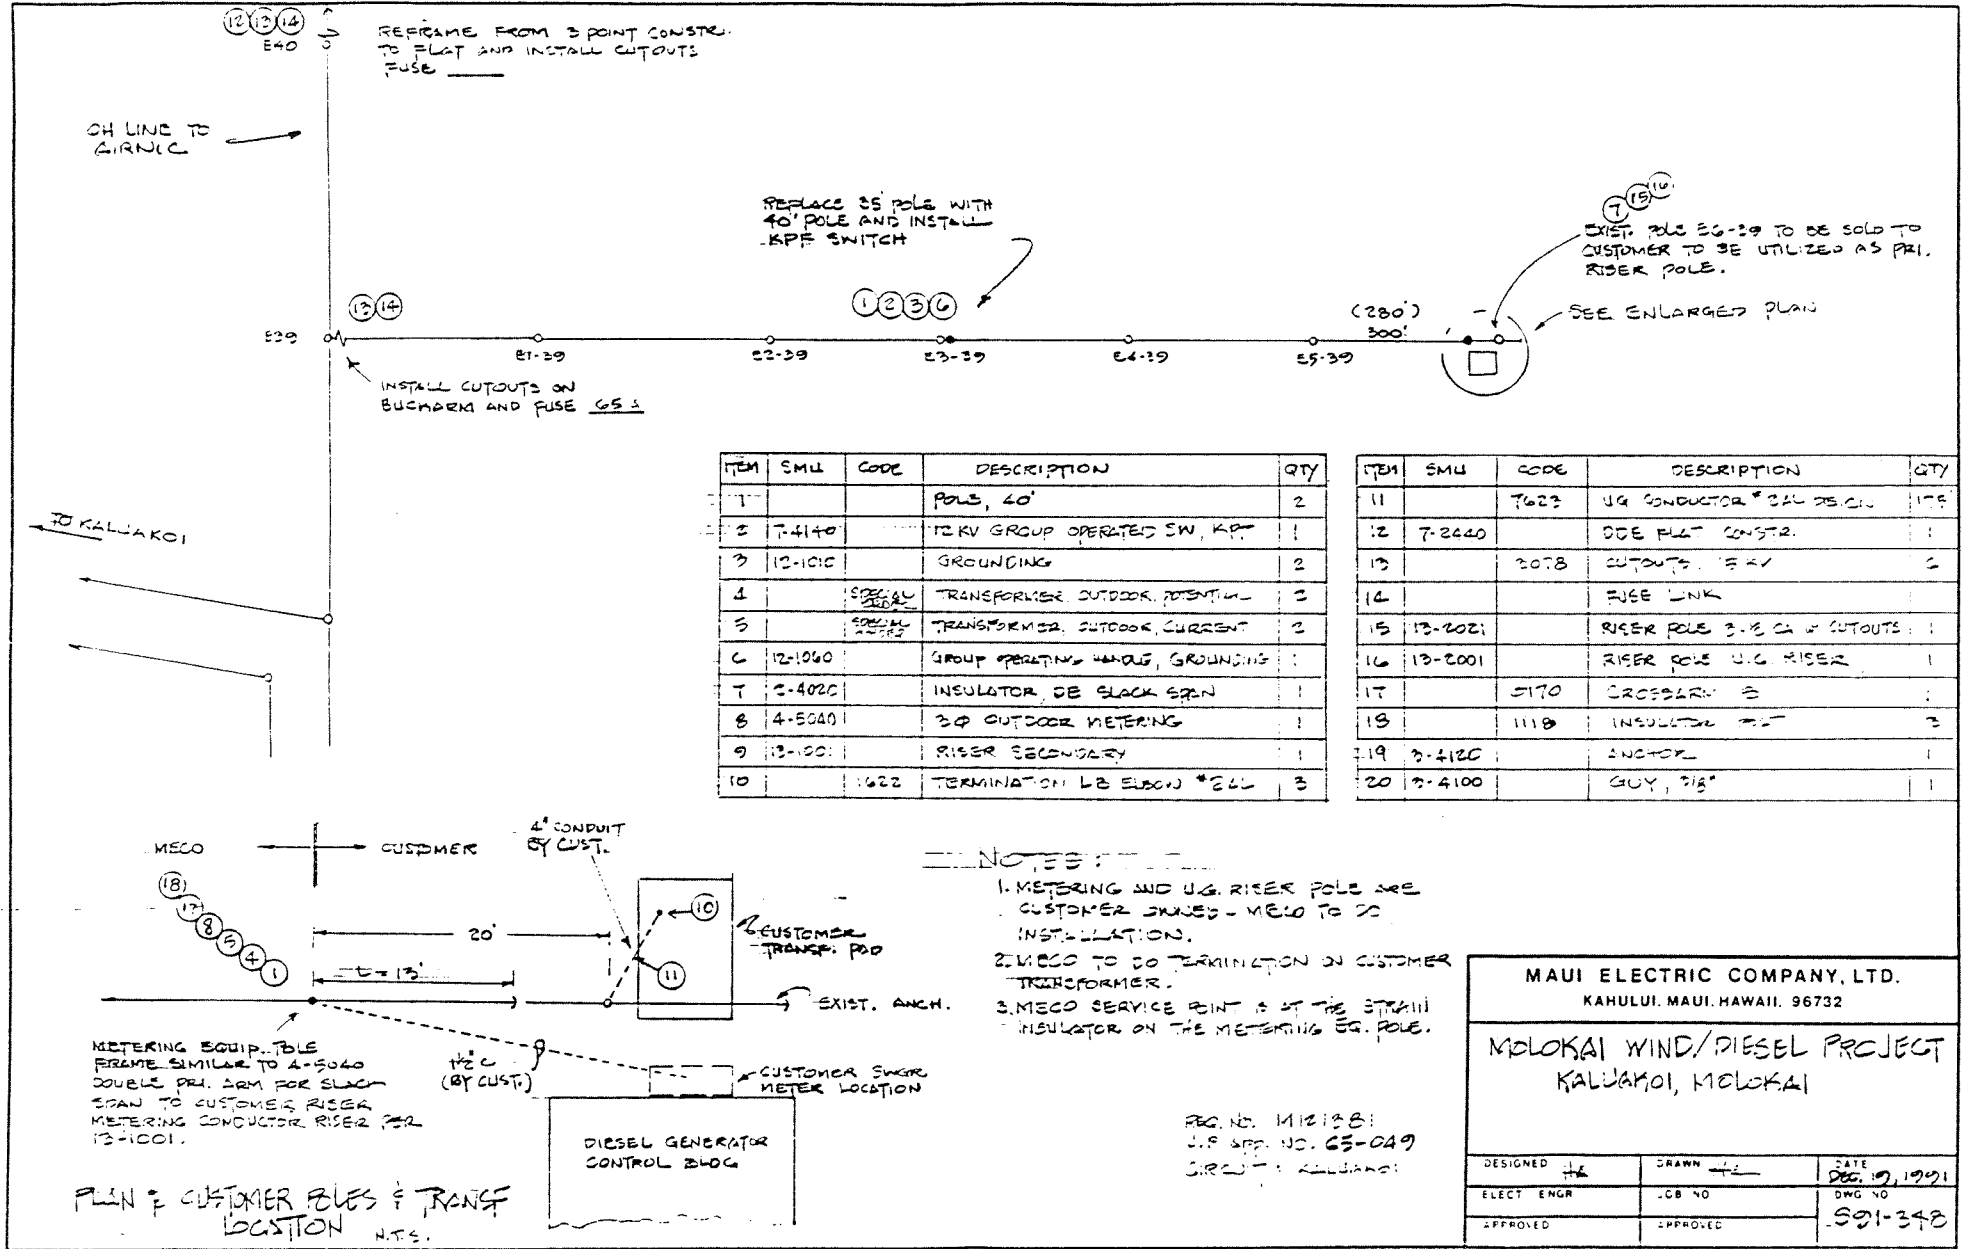 12 13 14
E40
REFRAME FROM 3 POINT CONSTR.
TO FLAT AND INSTALL CUTOUTS
FUSE
OH LINE TO
AIRNIC
REPLACE 35' POLE WITH
40' POLE AND INSTALL
KPF SWITCH
7 15 16
EXIST. POLE E6-39 TO BE SOLD TO
CUSTOMER TO BE UTILIZED AS PRI.
RISER POLE.
13 14
1 2 3 6
(280')
300'
SEE ENLARGED PLAN
E39
E1-39
E2-39
E3-39
E4-39
E5-39
INSTALL CUTOUTS ON
BUCKARM AND FUSE 65A
TO KALUAKOI
ITEM SMU CODE DESCRIPTION QTY
1 POLE, 40' 2
2 7-4140 12 KV GROUP OPERATED SW, KPF 1
3 12-1010 GROUNDING 2
4 SPECIAL ORDER TRANSFORMER, OUTDOOR, POTENTIAL
5 SPECIAL ORDER TRANSFORMER, OUTDOOR, CURRENT
6 12-1060 GROUP OPERATING HANDLE, GROUNDING 1
7 -4020 INSULATOR, DE SLACK SPAN 1
8 4-5040 3Ø OUTDOOR METERING 1
9 13-1001 RISER SECONDARY 1
10 1622 TERMINATION LB ELBOW #2AL 3
ITEM SMU CODE DESCRIPTION QTY
11 7623 UG CONDUCTOR #2AL 175'
12 7-2440 DDE FLAT CONSTR. 1
13 3078 CUTOUTS, 15 KV
14 FUSE LINK
15 13-2021 RISER POLE CUTOUTS 1
16 13-2001 RISER POLE U.G. RISER 1
17 CROSSARM 8
18 1118 INSULATOR 3
19 3-4120 ANCHOR 1
20 3-4100 GUY, 3/8" 1
MECO CUSTOMER
4" CONDUIT
BY CUST.
18
17
8
5
4
1
20'
t = 13'
10
11
CUSTOMER
TRANSF. PAD
EXIST. ANCH.
METERING EQUIP. POLE
FRAME SIMILAR TO 4-5040
DOUBLE PRI. ARM FOR SLACK
SPAN TO CUSTOMER RISER
METERING CONDUCTOR RISER PER
13-1001.
1½" C
(BY CUST.)
CUSTOMER SWGR
METER LOCATION
DIESEL GENERATOR
CONTROL BLDG
PLAN - CUSTOMER POLES & TRANSF
LOCATION N.T.S.
NOTES:
1. METERING AND U.G. RISER POLE ARE
CUSTOMER OWNED - MECO TO DO
INSTALLATION.
2. MECO TO DO TERMINATION ON CUSTOMER
TRANSFORMER.
3. MECO SERVICE POINT IS AT THE STRAIN
INSULATOR ON THE METERING EQ. POLE.
REG. NO. M121381
J.P. APP. NO. 65-049
CIRCUIT: KALUAKOI
MAUI ELECTRIC COMPANY, LTD.
KAHULUI, MAUI, HAWAII. 96732
MOLOKAI WIND/DIESEL PROJECT
KALUAKOI, MOLOKAI
DESIGNED DRAWN DATE
DEC. 19, 1991
ELECT ENGR JOB NO DWG NO
S91-348
APPROVED APPROVED